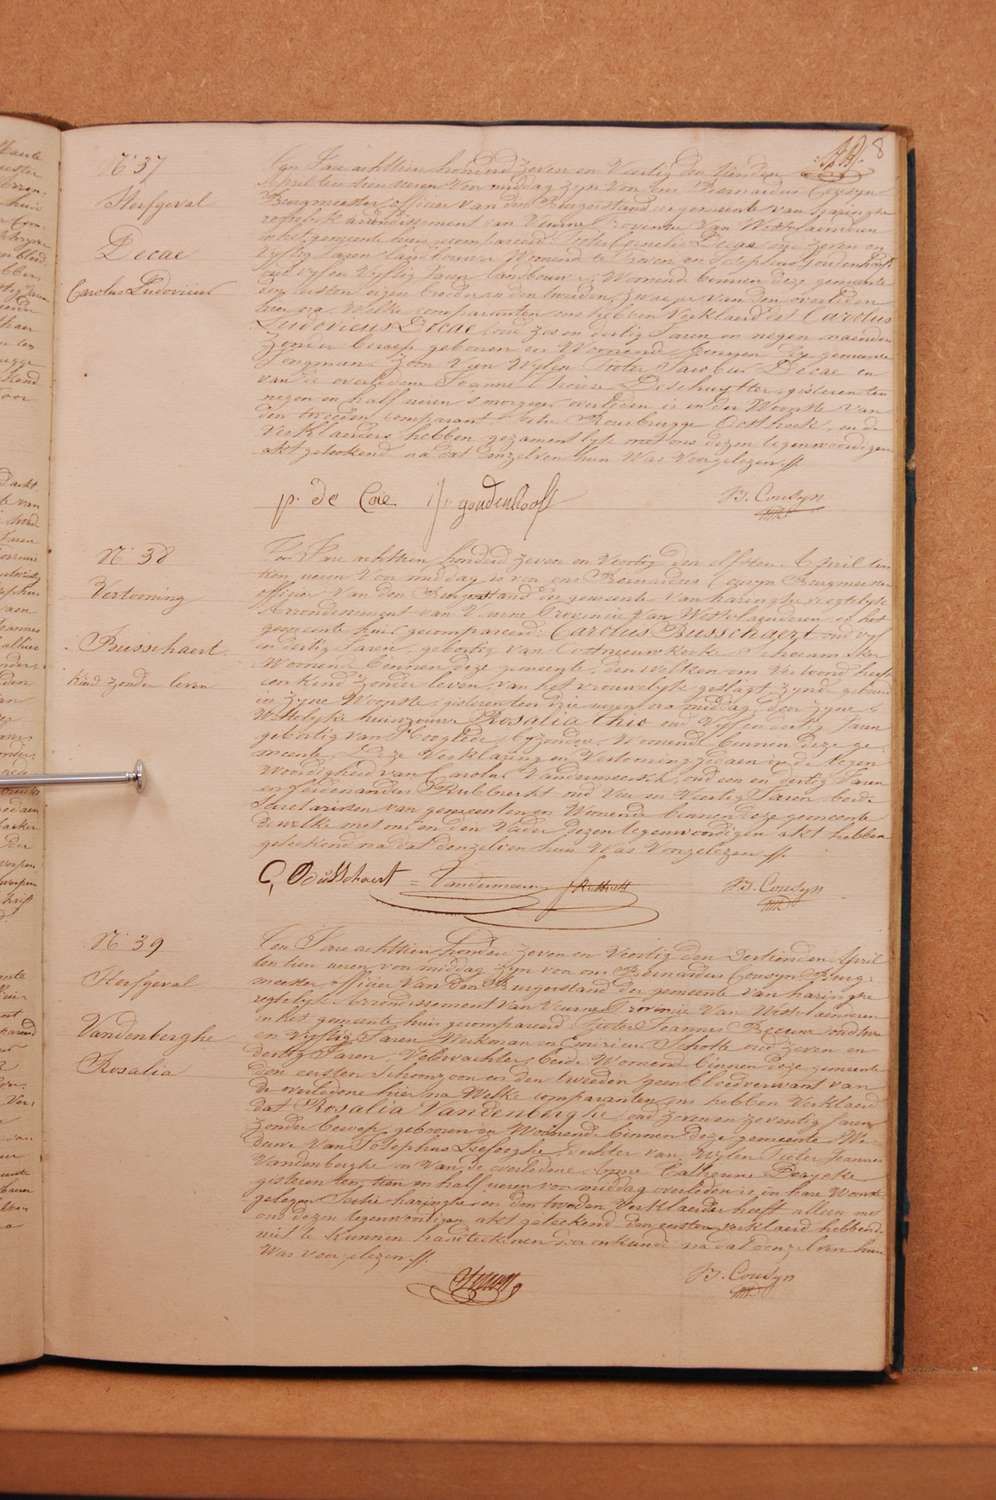 8
N° 37
Sterfgeval
Decae
Carolus Ludovicus
Ten Jare achttien honderd zeven en Veertig den tienden
April ten tien uren Voor middag zyn Von ons Bernardus Cousyn
Burgmeester officier van den Burgerstand der gemeente van haringhe
regtelyk arrondissement van Veurne Provincie Van Westvlaenderen
in het gemeente huis gecompareerd Pieter Cornelis Decae oud zeven en
vyftig Jaren Landbouwer Woonend te Proven en Josephus Goudenhooft
oud vyf en Vyftig Jaren Landbouwer Woonend binnen deze gemeente
den eersten eigen broeder en den tweeden zwager van den overleden
hier na Welke comparanten ons hebben Verklaerd dat Carolus
Ludovicus Decae oud zes en dertig Jaren en negen maenden
zonder beroep geboren en Woonend binnen deze gemeente
Jongman Zoon Van Wylen Pieter Jacobus Decae en
van de overledene Joanna Theresa Deschuytter, gisteren ten
negen en half uren s'morgens overleden is in de Woonste van
den tweeden comparant Wyke Rousbrugge Oosthoek, en de
Verklaerders hebben gezamentlyk met ons dezen tegenwoordigen
akt geteekend na dat denzelven hun Was Voorgelezen //.
p. de Cae J. goudenhooft B. J. Cousyn
N° 38
Vertooning
Busschaert
Kind zonder leven
Ten Jare achttien honderd zeven en Veertig den elfsten April ten
tien uren Voor middag is von ons Bernardus Cousyn Burgmeester
officier Van den Burgerstand der gemeente Van haringhe regtelyk
Arrondissement van Veurne Provincie Van Westvlaenderen in het
gemeente huis gecompareerd: Carolus Busschaert oud vyf
en dertig Jaren, geboortig van Oostnieuwkerke
Woonend binnen deze gemeente, den Welken ons Vertoond heeft
een kind zonder leven, van het vrouwelyke geslagt, zynde geboren
in zyne Woonste gisteren ten drie uren na middag, door zyne
Wettelyke huisvrouw Rosalia Thio oud Vyf en dertig Jaren
geboortig van hooglede, byzondere Woonend binnen deze ge-
meente. Deze Verklaring en Vertooning gedaen in de tegen-
Woordigheid van Carolus Vandermeersch oud een en dertig Jaren
en Ferdinandus Rubbrecht oud Vier en Veertig Jaren, beide
Secretarissen van gemeenten en Woonend binnen deze gemeente
de welke met ons en den Vader dezen tegenwoordigen akt hebben
geteekend na dat denzelven hun Was Voorgelezen //.
C, Busschaert Vandermeersch f. Rubbrecht B. J. Cousyn
N° 39
Sterfgeval
Vandenberghe
Rosalia
Ten Jare achttien honderd zeven en Veertig den dertienden April
ten tien uren voor middag zyn von ons Bernardus Cousyn Burg-
meester officier Van den Burgerstand der gemeente van haringhe
regtelyk Arrondissement Van Veurne Provincie Van Westvlaenderen
in het gemeente huis gecompareerd Pieter Joannes Preeuw oud
en Vyftig Jaren Werkman en Henricus Schotte oud zeven en
dertig Jaren, Veldwachter, beide Woonend binnen deze gemeente
den eersten schoonzoon en den tweeden geen bloedverwant van
de overledene hier na Welke comparanten ons hebben Verklaerd
dat Rosalia Vandenberghe, oud zeven en zeventig Jaren
zonder beroep, geboren en Woonende binnen deze gemeente We-
duwe Van Josephus Liefooghe, dochter van Wylen Pieter Joannes
Vandenberghe en Van de overledene Anne Catherine Beyaeke
gisteren ten tien en half uren voor middag overleden is in hare Woonste
gelegen Wyke haringhe en den tweeden Verklaerder heeft alleen met
ons dezen tegenwoordigen akt geteekend den eersten verklaerd hebbende
niet te kunnen handteekenen na dat denzelven hun
Was voorgelezen //.
B. J. Cousyn